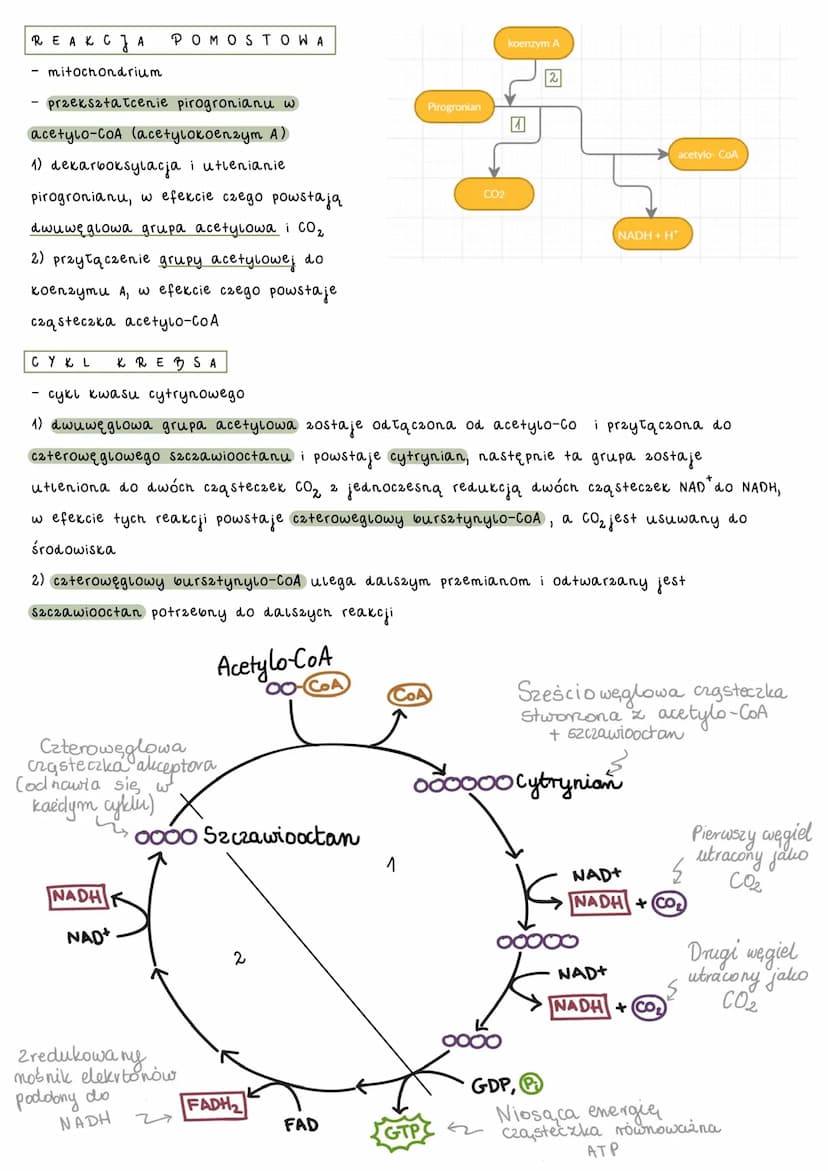 REAKCJA POMOSTOWA
- mitochondrium
- przekształcenie pirogronianu w
acetylo-CoA (acetylokoenzym A)
1) dekarboksylacja i utlenianie
pirogronianu, w efekcie czego powstają
dwuwęglowa grupa acetylowa i CO₂
2) przyłączenie grupy acetylowej do
koenzymu A, w efekcie czego powstaje
cząsteczka acetylo-CoA
koenzym A
2
Pirogronian
1
acetylo- CoA
CO2
NADH + H⁺
CYKL KREBSA
- cykl kwasu cytrynowego
1) dwuwęglowa grupa acetylowa zostaje odłączona od acetylo-Co i przyłączona do
czterowęglowego szczawiooctanu i powstaje cytrynian, następnie ta grupa zostaje
utleniona do dwóch cząsteczek CO₂ z jednoczesną redukcją dwóch cząsteczek NAD⁺ do NADH,
w efekcie tych reakcji powstaje czteroweglowy bursztynylo-CoA, a CO₂ jest usuwany do
środowiska
2) czterowęglowy bursztynylo-CoA ulega dalszym przemianom i odtwarzany jest
szczawiooctan potrzebny do dalszych reakcji
Acetylo-CoA
CoA
CoA
Sześciowęglowa cząsteczka
stworzona z acetylo-CoA
+ szczawiooctan
Czterowęglowa
cząsteczka akceptora
(odnawia się w
każdym cyklu)
Cytrynian
Szczawiooctan
1
Pierwszy węgiel
utracony jako
CO₂
NAD+
NADH + CO₂
NADH
NAD⁺
2
Drugi węgiel
utracony jako
CO₂
NAD+
NADH + CO₂
Zredukowany
nośnik elekrtonów
podobny do
NADH
FADH₂
FAD
GDP, Pi
GTP
Niosąca energię
cząsteczka równoważna
ATP